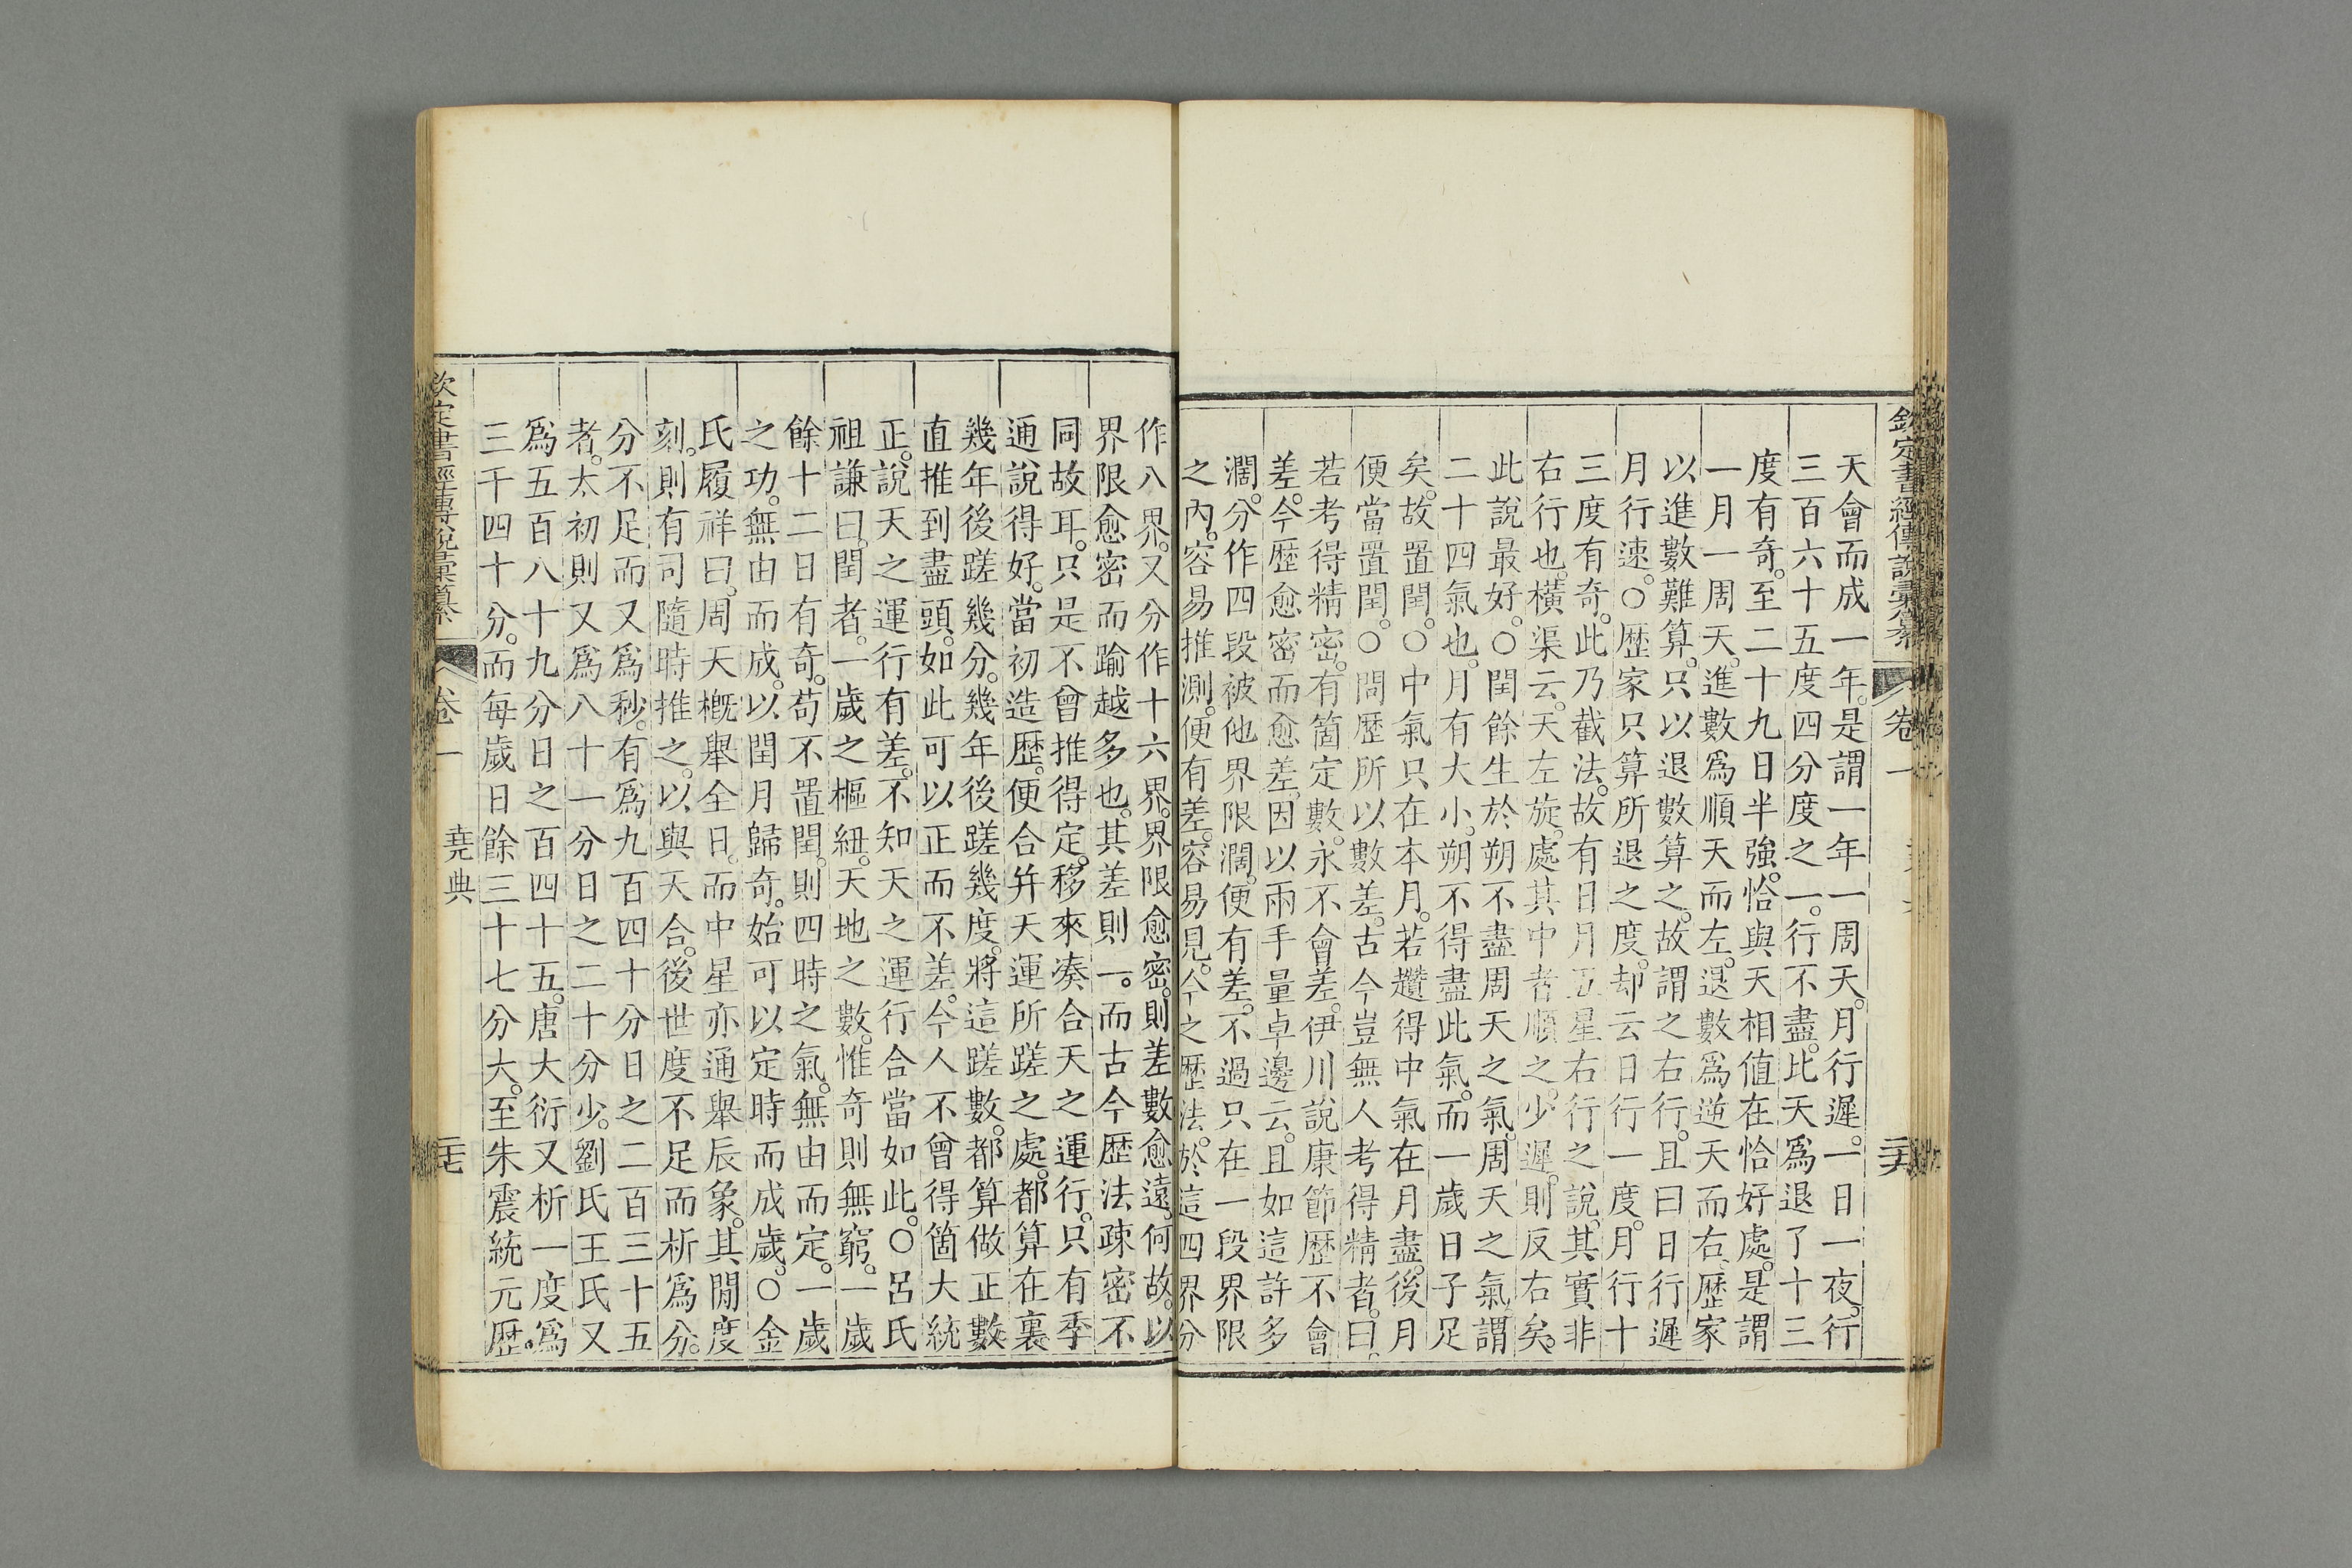 欽定書經傳說彙纂 卷一 二十六
天會而成一年。是謂一年一周天。月行遲。一日一夜。行
三百六十五度四分度之一。行不盡。比天爲退了十三
度有奇。至二十九日半強。恰與天相值在恰好處。是謂
一月一周天。進數爲順天而左。退數爲逆天而右。歷家
以進數難算。只以退數算之。故謂之右行。且曰日行遲
月行速。○歷家只算所退之度。却云日行一度。月行十
三度有奇。此乃截法。故有日月五星右行之說。其實非
右行也。橫渠云。天左旋。處其中者順之。少遲。則反右矣。
此說最好。○閏餘生於朔不盡周天之氣。周天之氣。謂
二十四氣也。月有大小。朔不得盡此氣。而一歲日子足
矣。故置閏。○中氣只在本月。若趲得中氣在月盡。後月
便當置閏。○問歷所以數差。古今豈無人考得精者。曰。
若考得精密。有箇定數。永不會差。伊川說康節歷不會
差。今歷愈密而愈差。因以兩手量卓邊云。且如這許多
濶。分作四段。被他界限濶。便有差。不過只在一段界限
之內。容易推測。便有差。容易見。今之歷法。於這四界分
作八界。又分作十六界。界限愈密。則差數愈遠。何故。以
界限愈密而踰越多也。其差則一。而古今歷法疎密不
同故耳。只是不曾推得定。移來凑合天之運行。只有季
通說得好。當初造歷。便合幷天運所蹉之處。都算在裏
幾年後蹉幾分。幾年後蹉幾度。將這蹉數。都算做正數
直推到盡頭。如此可以正而不差。今人不曾得箇大統
正。說天之運行有差。不知天之運行合當如此。○呂氏
祖謙曰。閏者。一歲之樞紐。天地之數。惟奇則無窮。一歲
餘十二日有奇。苟不置閏。則四時之氣。無由而定。一歲
之功。無由而成。以閏月歸奇。始可以定時而成歲。○金
氏履祥曰。周天概舉全日。而中星亦通舉辰象。其閒度
刻。則有司隨時推之。以與天合。後世度不足而析爲分。
分不足而又爲秒。有爲九百四十分日之二百三十五
者。太初則又爲八十一分日之二十分少。劉氏王氏又
爲五百八十九分日之百四十五。唐大衍又析一度爲
三千四十分。而每歲日餘三十七分大。至朱震統元歷。
欽定書經傳說彙纂 卷一 堯典 二十七